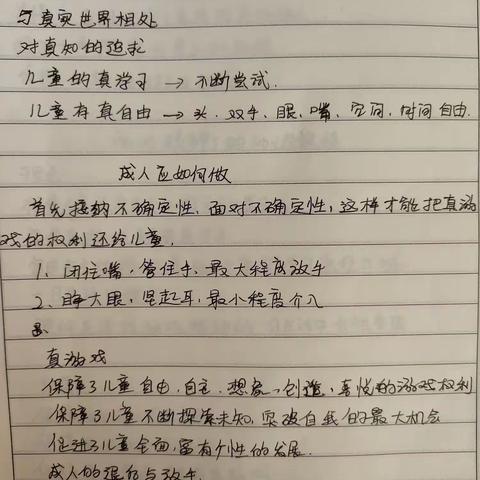 与真实世界相处
对真知的追求
儿童的真学习 → 不断尝试.
儿童有真自由 → 头、双手、眼、嘴、空间、时间自由.
成人应如何做
首先接纳不确定性,面对不确定性,这样才能把真游
戏的权利还给儿童.
1、闭住嘴,管住手,最大程度放手
2、睁大眼,竖起耳,最小程度介入
真游戏
保障了儿童自由、自主、想象、创造、喜悦的游戏权利
保障了儿童不断探索未知、突破自我的最大机会
促进了儿童全面、富有个性的发展.
成人的退后与放手.